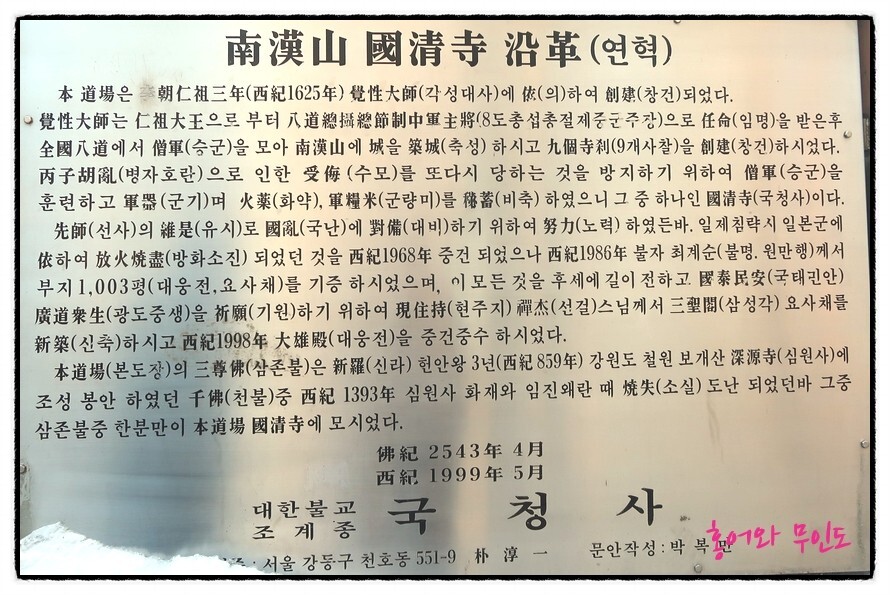 南漢山 國清寺 沿革(연혁)
本 道場은 朝仁祖三年(西紀1625年) 覺性大師(각성대사)에 依(의)하여 創建(창건)되었다.
覺性大師는 仁祖大王으로 부터 八道總攝總節制中軍主將(8도총섭총절제중군주장)으로 任命(임명)을 받은후
全國八道에서 僧軍(승군)을 모아 南漢山에 城을 築城(축성) 하시고 九個寺刹(9개사찰)을 創建(창건)하시었다.
丙子胡亂(병자호란)으로 인한 受侮(수모)를 또다시 당하는 것을 방지하기 위하여 僧軍(승군)을
훈련하고 軍器(군기)며 火薬(화약), 軍糧米(군량미)를 秘蓄(비축) 하였으니 그 중 하나인 國清寺(국청사)이다.
先師(선사)의 維是(유시)로 國亂(국난)에 對備(대비)하기 위하여 努力(노력) 하였든바. 일제침략시 일본군에
依하여 放火燒盡(방화소진) 되었던 것을 西紀1968年 중건 되었으나 西紀1986年 불자 최계순(불명. 원만행)께서
부지 1,003평(대웅전,요사채)를 기증 하시었으며, 이 모든 것을 후세에 길이 전하고 國泰民安(국태민안)
廣道衆生(광도중생)을 祈願(기원)하기 위하여 現住持(현주지) 禪杰(선걸)스님께서 三聖閣(삼성각) 요사채를
新築(신축)하시고 西紀1998年 大雄殿(대웅전)을 중건중수 하시었다.
本道場(본도장)의 三尊佛(삼존불)은 新羅(신라) 헌안왕 3년(西紀 859年) 강원도 철원 보개산 深源寺(심원사)에
조성 봉안 하였던 千佛(천불)중 西紀 1393年 심원사 화재와 임진왜란 때 燒失(소실) 도난 되었던바 그중
삼존불중 한분만이 本道場 國清寺에 모시었다.
佛紀 2543年 4月
西紀 1999年 5月
대한불교
조계종 국청사
서울 강동구 천호동 551-9 朴淳一 문안작성 : 박복만
홍어와 무인도